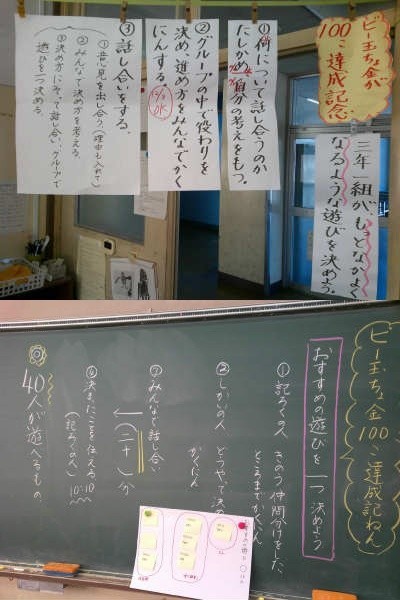 ビー玉ちょ金が
100こ達成記念
三年一組が、もっとなかよく
なるような遊びを決めよう
①何について話し合うのか
たしかめ、自分の考えをもつ。
②グループの中で役わりを
決め、進め方をみんなでかく
にんする。
③話し合いをする。
①意見を出し合う(理由も入れて)
②みんなで決め方を考える。
③決め方にそって話し合い、グループで
遊びを一つ決める。
ビー玉ちょ金
100こ達成記ねん
おすすめの遊びを一つ決めよう
①記ろくの人 きのう仲間分けをした
ところまでかくにん
②しかいの人 どうやって決め
かくにん
③みんなで話し合い
(二十)分
④決まったことを伝える 10:10
(記ろくの人)
◎40人が遊べるもの